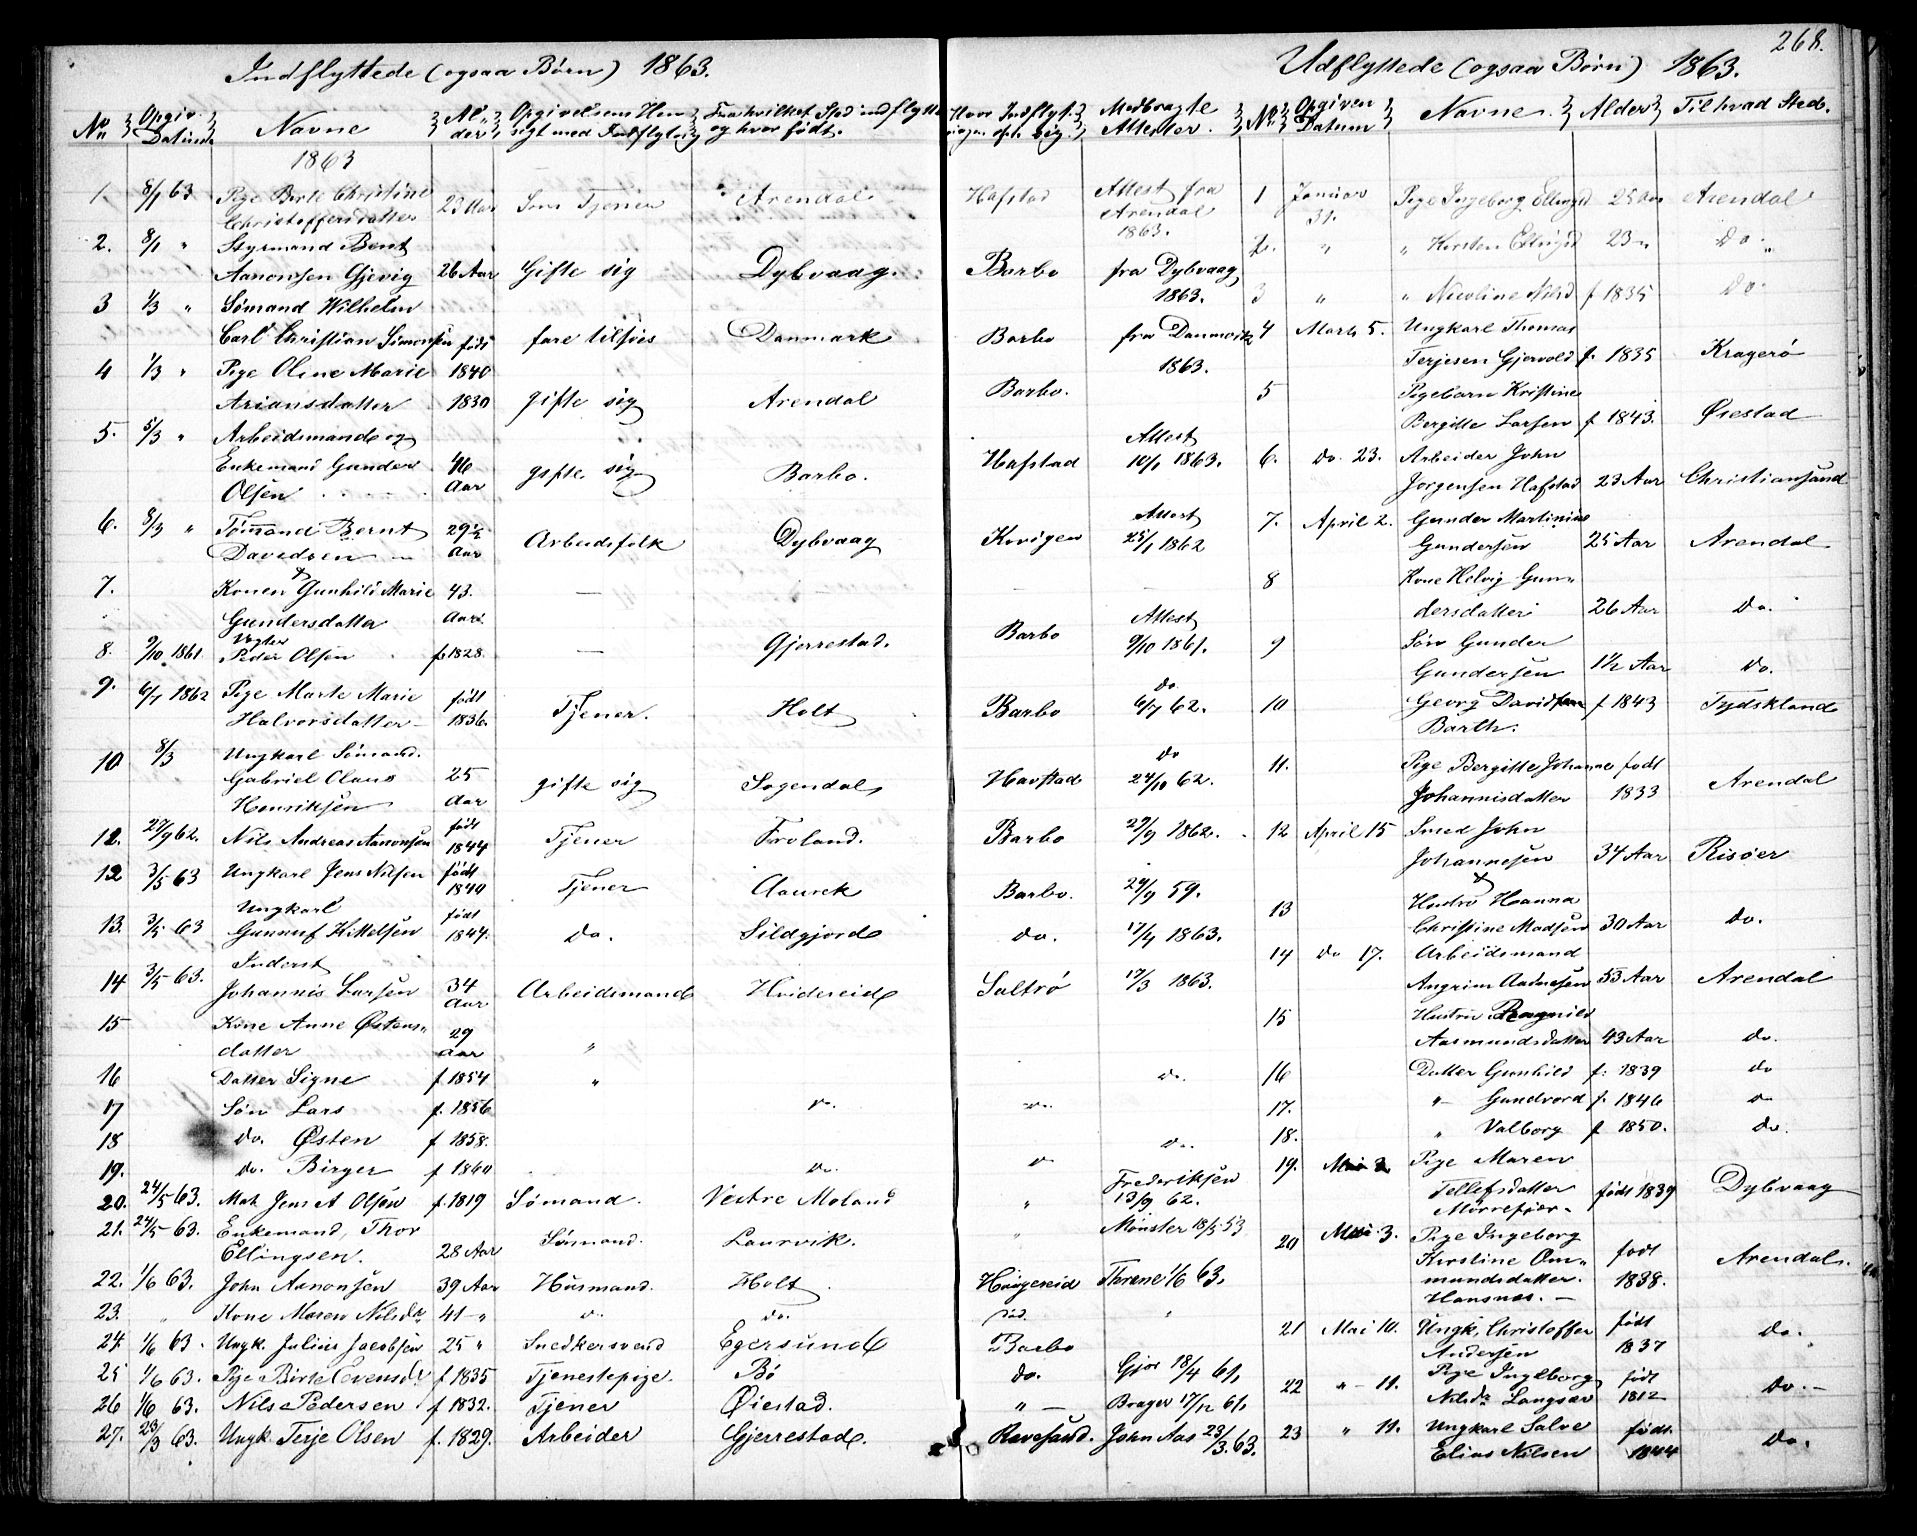 268.
Indflyttede (ogsaa Børn) 1863.
No Opgiv. Datum Navne Alder Opgivelsens Hensigt med Indflytning Fra hvilket Sted indflyttet og hvor født. Hvor Indflyt. Medbragte Attester.
1863
1 8/1 63 Pige Berte Christine Christoffersdatter 23 Aar Som Tjener Arendal Hafstad Attest fra Arendal 1863.
2. 8/1 " Styrmand Bent Aanonsen Gjevig 26 Aar Gifte sig Dybvaag. Barbo fra Dybvaag 1863.
3 1/3 " Sømand Wilhelm Carl Christian Simonsen født 1840 fare tilsøes Danmark Barbo fra Danmark 1863.
4 1/3 " Pige Oline Marie Ariansdatter 1830 gifte sig Arendal Barbo.
5. 5/3 " Arbeidsmand og Enkemand Gunder Olsen 46 Aar gifte sig Barbo. Hafstad Attest 10/1 1863.
6. 8/3 " Tømand Bernt Davidsen 29 1/2 Aar Arbeidsfolk Dybvaag Kovigen Attest 25/1 1862
7. Konen Gunhild Marie Gundersdatter 43. Aar — — —
8. 9/10 1861 Vogter Peder Olsen f 1828. — Gjerrestad. Barbo Attest 9/10 1861.
9. 6/7 1862 Pige Marte Marie Halvorsdatter født 1836. Tjener. Holt Barbo do. 6/7 62.
10 8/3 Ungkarl Sømand. Gabriel Olaus Henriksen 25 Aar gifte sig Sogendal Havstad do 24/10 62.
12. 27/9 62. Nils Andreas Aanonsen født 1844 Tjener Froland. Barbo 27/9 1862.
12 3/5 63 Ungkarl Jens Nilsen født 1840 Tjener Barbo. 24/9 59.
13. 3/5 63 Ungkarl Gunnuf Kittelsen født 1847. Do. Sildgjord do. 17/4 1863.
14 3/5 63. Inderst Johannis Larsen 34 Aar Arbeidsmand Hvidereid Saltrø 17/3 1863.
15 Kone Anne Østensdatter 29 Aar "
16 Datter Signe f 1854 " do.
17 Søn Lars f. 1856 do. do.
18 do. Østen f 1858. do.
19. do. Birger f 1860 do. do
20. 24/5 63. Mat. Jens A Olsen f. 1819 Sømand. Vestre Moland " Frederiksen 13/9 62.
21. 24/5 63. Enkemand, Thor Ellingsen. 28 Aar Sømand. Laurvik. " Mønster 18/5 53
22. 1/6 63. John Aanonsen 39 Aar Husmand. Holt Thrane 1/6 63.
23. " Kone Maren Nilsdr 41 " do. do. "
24. 1/6 63. Ungk. Julius Jacobsen 25 " Snedkersvend Egersund Barbo
25 1/6 63. Pige Birte Evensdr f 1835 Tjenestepige. Bø do. Gjør 18/4 61,
26 1/6 63. Nils Pedersen f 1832. Tjener Øiestad. " — Brager 17/12 61,
27. 23/3 63. Ungk. Terje Olsen f. 1829. Arbeider Gjerrestad. Revesand. John Aas 23/3. 63.
Udflyttede (ogsaa Børn) 1863.
No. Opgiven Datum Navne. Alder Til hvad Sted.
1 Januar 31. Pige Ingeborg Ellingsd 25 Aar Arendal
2. " " Kirsten Ellingsd 23 " Do.
3 " " Nicoline f 1835 Do.
4 Marts 5. Ungkarl Thomas Terjesen Gjervold f. 1835 Kragerø
5 Pigebarn Kristine Bergitte Larsen f 1843. Øiestad
6. Do. 23. Arbeider John Jorgensen Hafstad 23 Aar Christiansand
7. April 2. Gunder Martinius Gundersen 25 Aar Arendal
8 Kone Helvig Gundersdatter 26 Aar Do.
9 Søn Gunder Gundersen 1 1/2 Aar Do.
10 Georg Davidsen Barth. f 1843 Tydskland
11. Pige Bergitte Johanne Johannisdatter født 1833 Arendal
12 April 15 Smed John Johannesen 34 Aar Risøer
13 Hustro Hanna Christine Madsen 30 Aar do.
14 Do 17. Arbeidsmand Angrim Aadnesen 53 Aar Arendal
15 Hustru Ragnild Aasmundsdatter 43 Aar do.
16 Datter Gunhild f: 1839 do
17. " Gundvord f. 1846 do
18. " Valborg f 1850. do.
19. Mai 3 Pige Maren Tellefsdatter Mørrefjær. født 1839 Dybvaag
20 Mai 3. Pige Ingeborg Kirstine Ommundsdatter. Hansnæs. — født 1838. Arendal.
21 Mai 10. Ungk. Christoffer Andersen født 1837 Do.
22 " — 11. Pige Ingeborg Nilsdr Langsæ født 1812 Do. —
23 " 11. Ungkarl Salve Elias Nilsen født. 1844 Do.